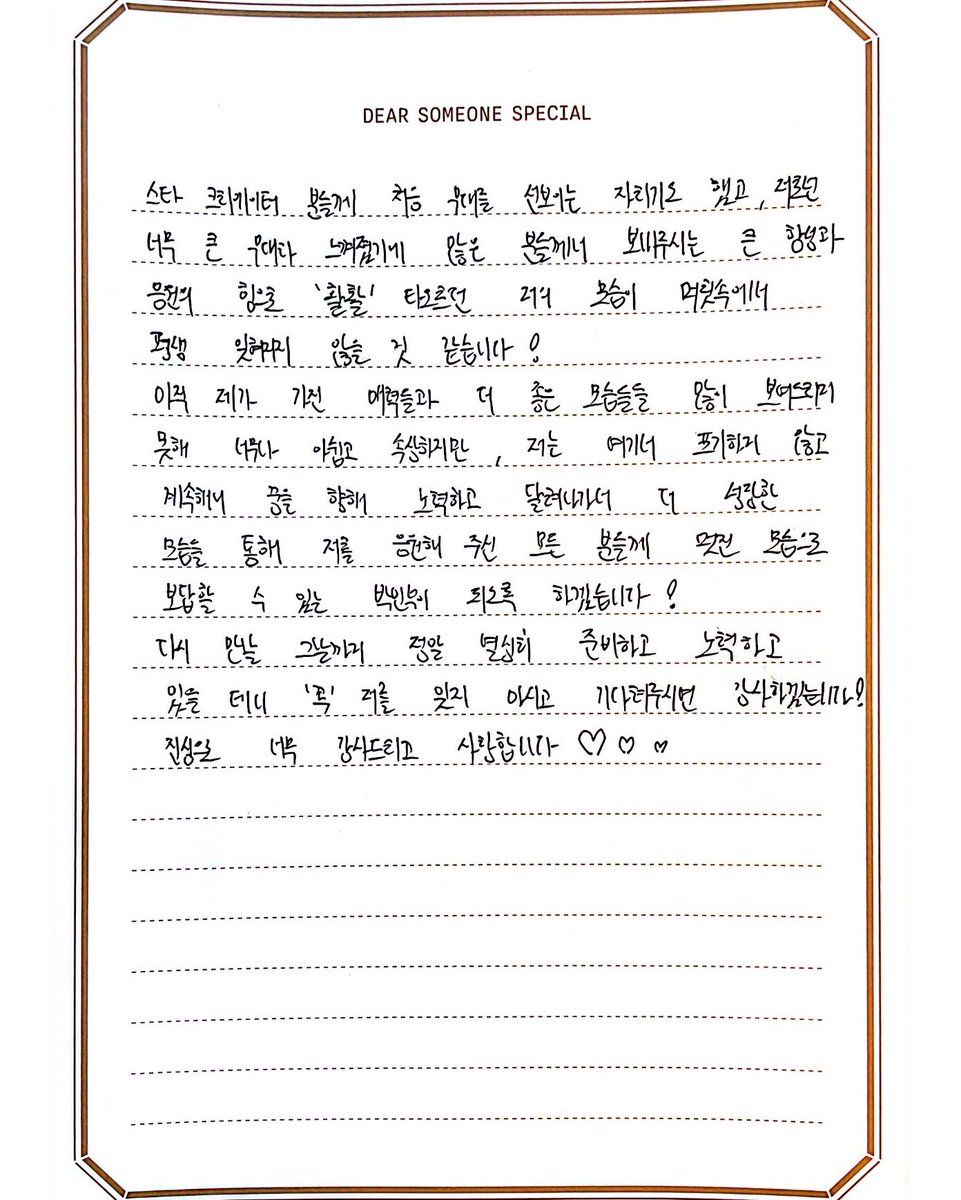 DEAR SOMEONE SPECIAL
스타 크리에이터 분들께 처음 무대를 선보이는 자리기도 했고, 저로선
너무 큰 무대라 느껴졌기에 많은 분들께서 보내주시는 큰 함성과
응원의 힘으로 '활활' 타오르던 저의 모습이 머릿속에서
평생 잊혀지지 않을 것 같습니다!
아직 제가 가진 매력들과 더 좋은 모습들을 많이 보여드리지
못해 너무나 아쉽고 속상하지만, 저는 여기서 포기하지 않고
계속해서 꿈을 향해 노력하고 달려나가서 더 성장한
모습을 통해 저를 응원해 주신 모든 분들께 멋진 모습으로
보답할 수 있는 되도록 하겠습니다!
다시 만날 그날까지 정말 열심히 준비하고 노력하고
있을 테니 '꼭' 저를 잊지 마시고 기다려주시면 감사하겠습니다!
진심으로 너무 감사드리고 사랑합니다 ♡♡♡